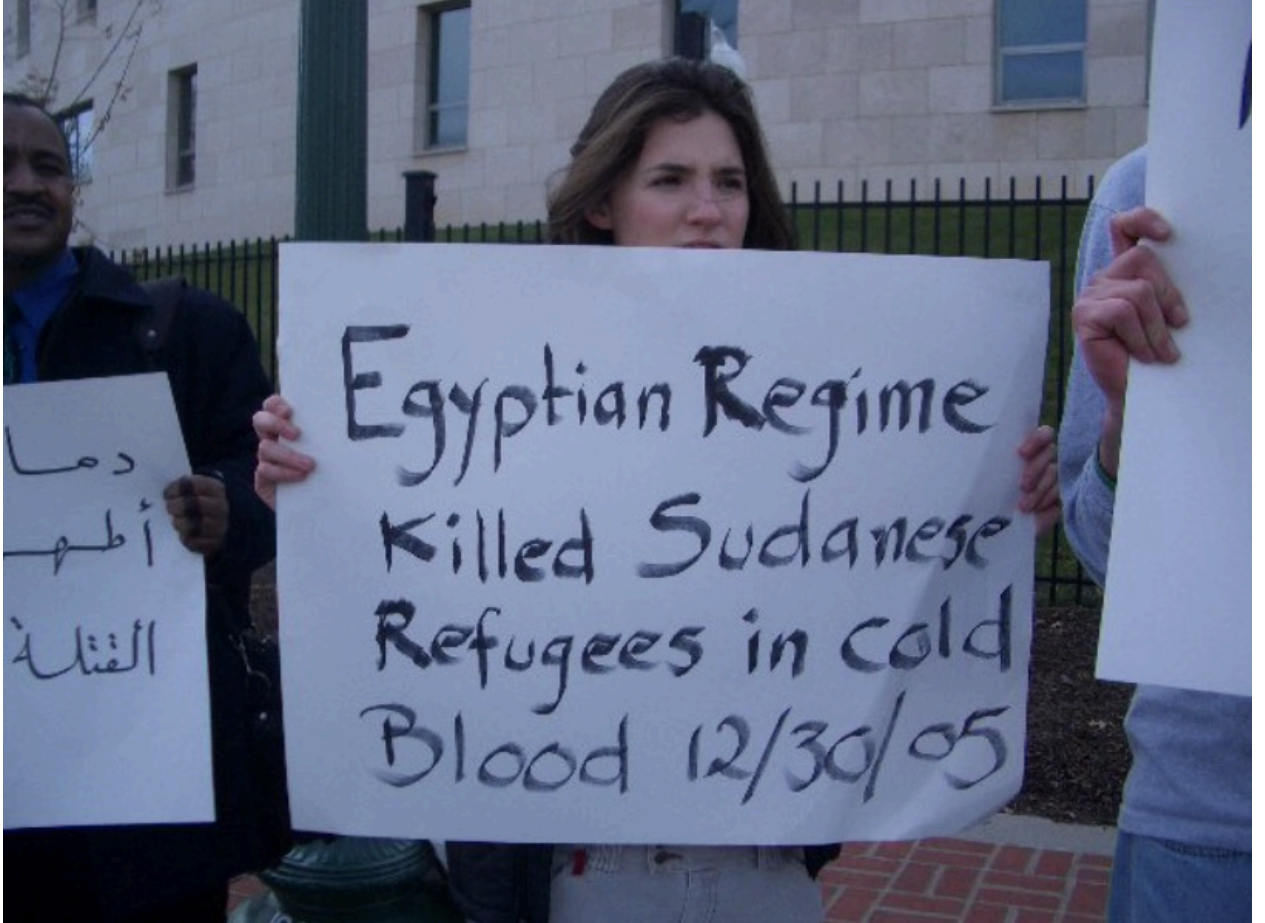 دما
أطهـ
القتلة
Egyptian Regime
Killed Sudanese
Refugees in cold
Blood 12/30/05